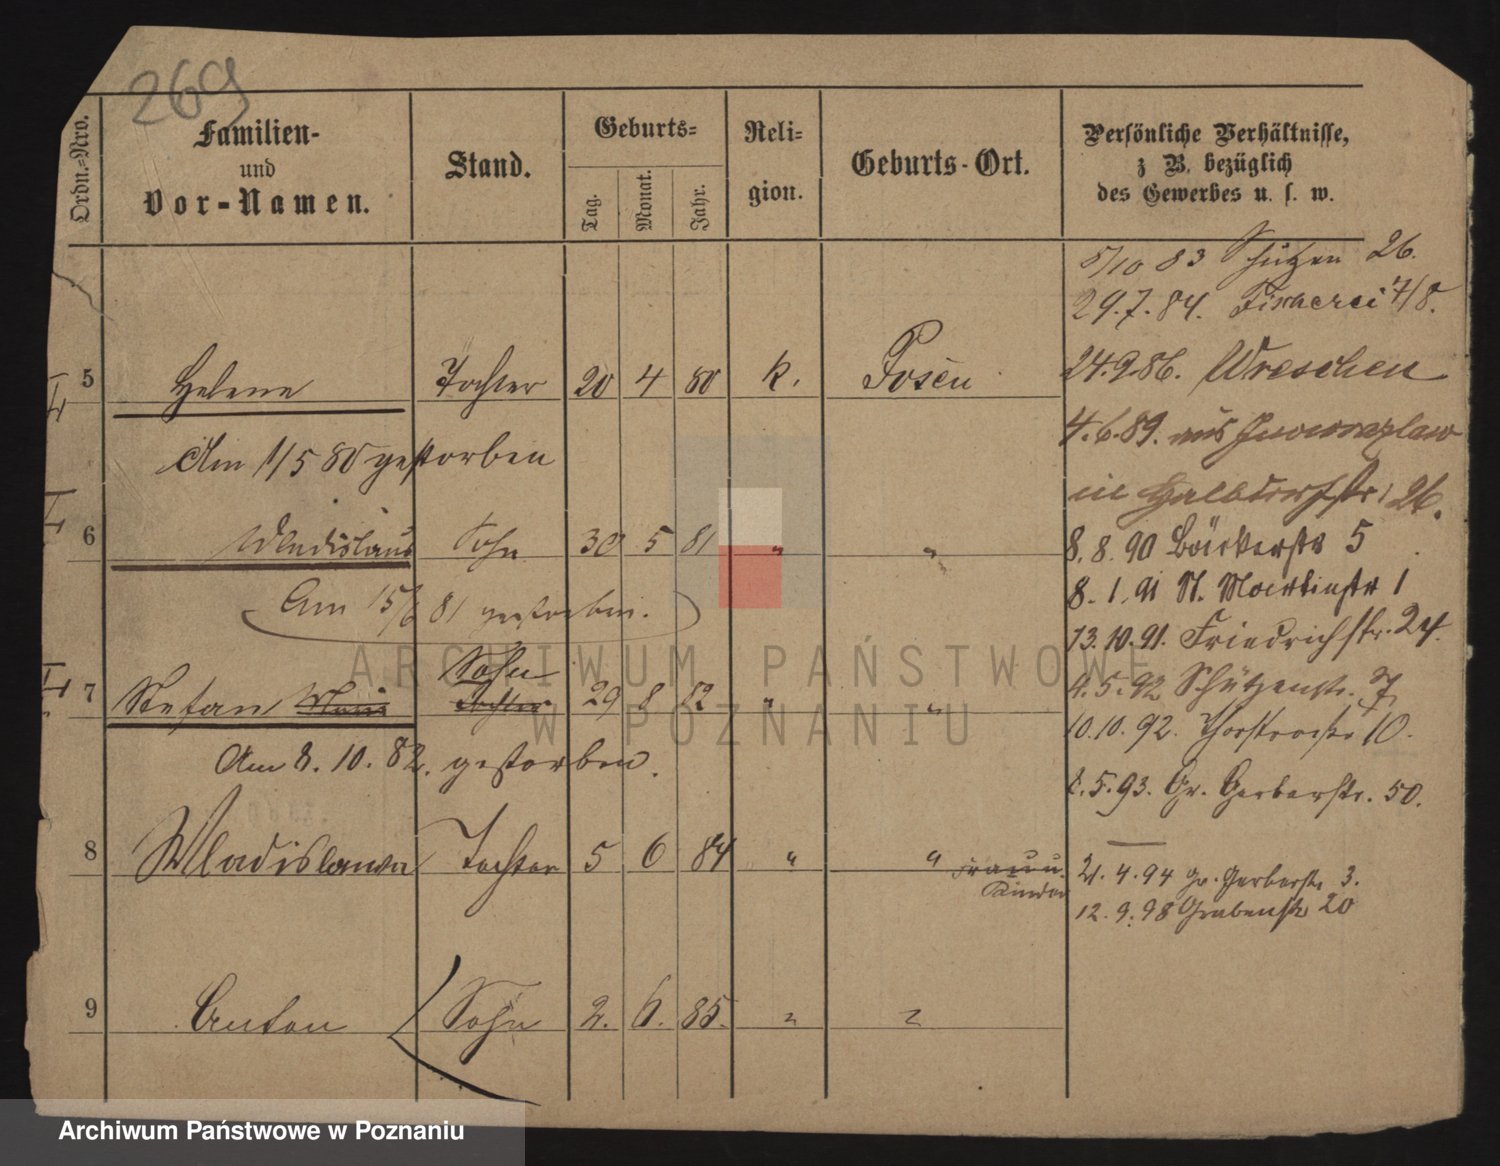 269
Ordn.=Nro.
Familien-
und
Vor-Namen.
Stand.
Geburts=
Tag.
Monat.
Jahr.
Reli=
gion.
Geburts-Ort.
Persönliche Verhältnisse,
z B. bezüglich
des Gewerbes u. s. w.
5/10 83 Schützen 26.
29.7.84. 7/8.
5 Helene Tochter 20 4 80 k. Posen
24.9.86. Wreschen
Am 1/5 80 gestorben
4.6.89. aus Inowrazlaw
in Halbdorfstr. 26.
6 Wladislaus Sohn 30 5 81 " "
8.8.90 Bäckerstr 5
Am 15/6 81 gestorben.
8.1.91 St. Martinstr 1
13.10.91. Friedrichstr. 24.
Sohn
7 Stefan Maria Tochter 29 8 82 " "
4.5.92 Schützenstr. 7
10.10.92. Thorstrasse 10.
Am 8.10.82. gestorben.
8.5.93. Gr. Gerberstr. 50.
8 Wladislawa Tochter 5 6 84 " "
Frau u.
Kinder
21.4.94 Gr. Gerberstr 3.
12.9.98 Grabenstr 20
9 Anton Sohn 2. 6. 85. " "
ARCHIWUM PAŃSTWOWE
W POZNANIU
Archiwum Państwowe w Poznaniu